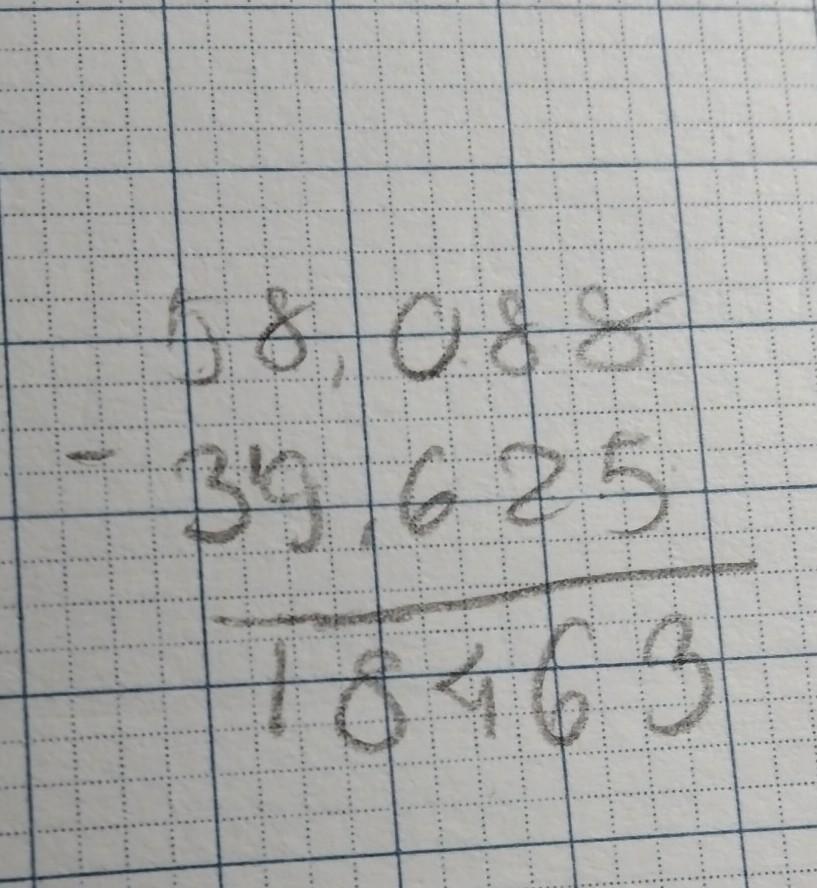 58,088
- 39,625
18463